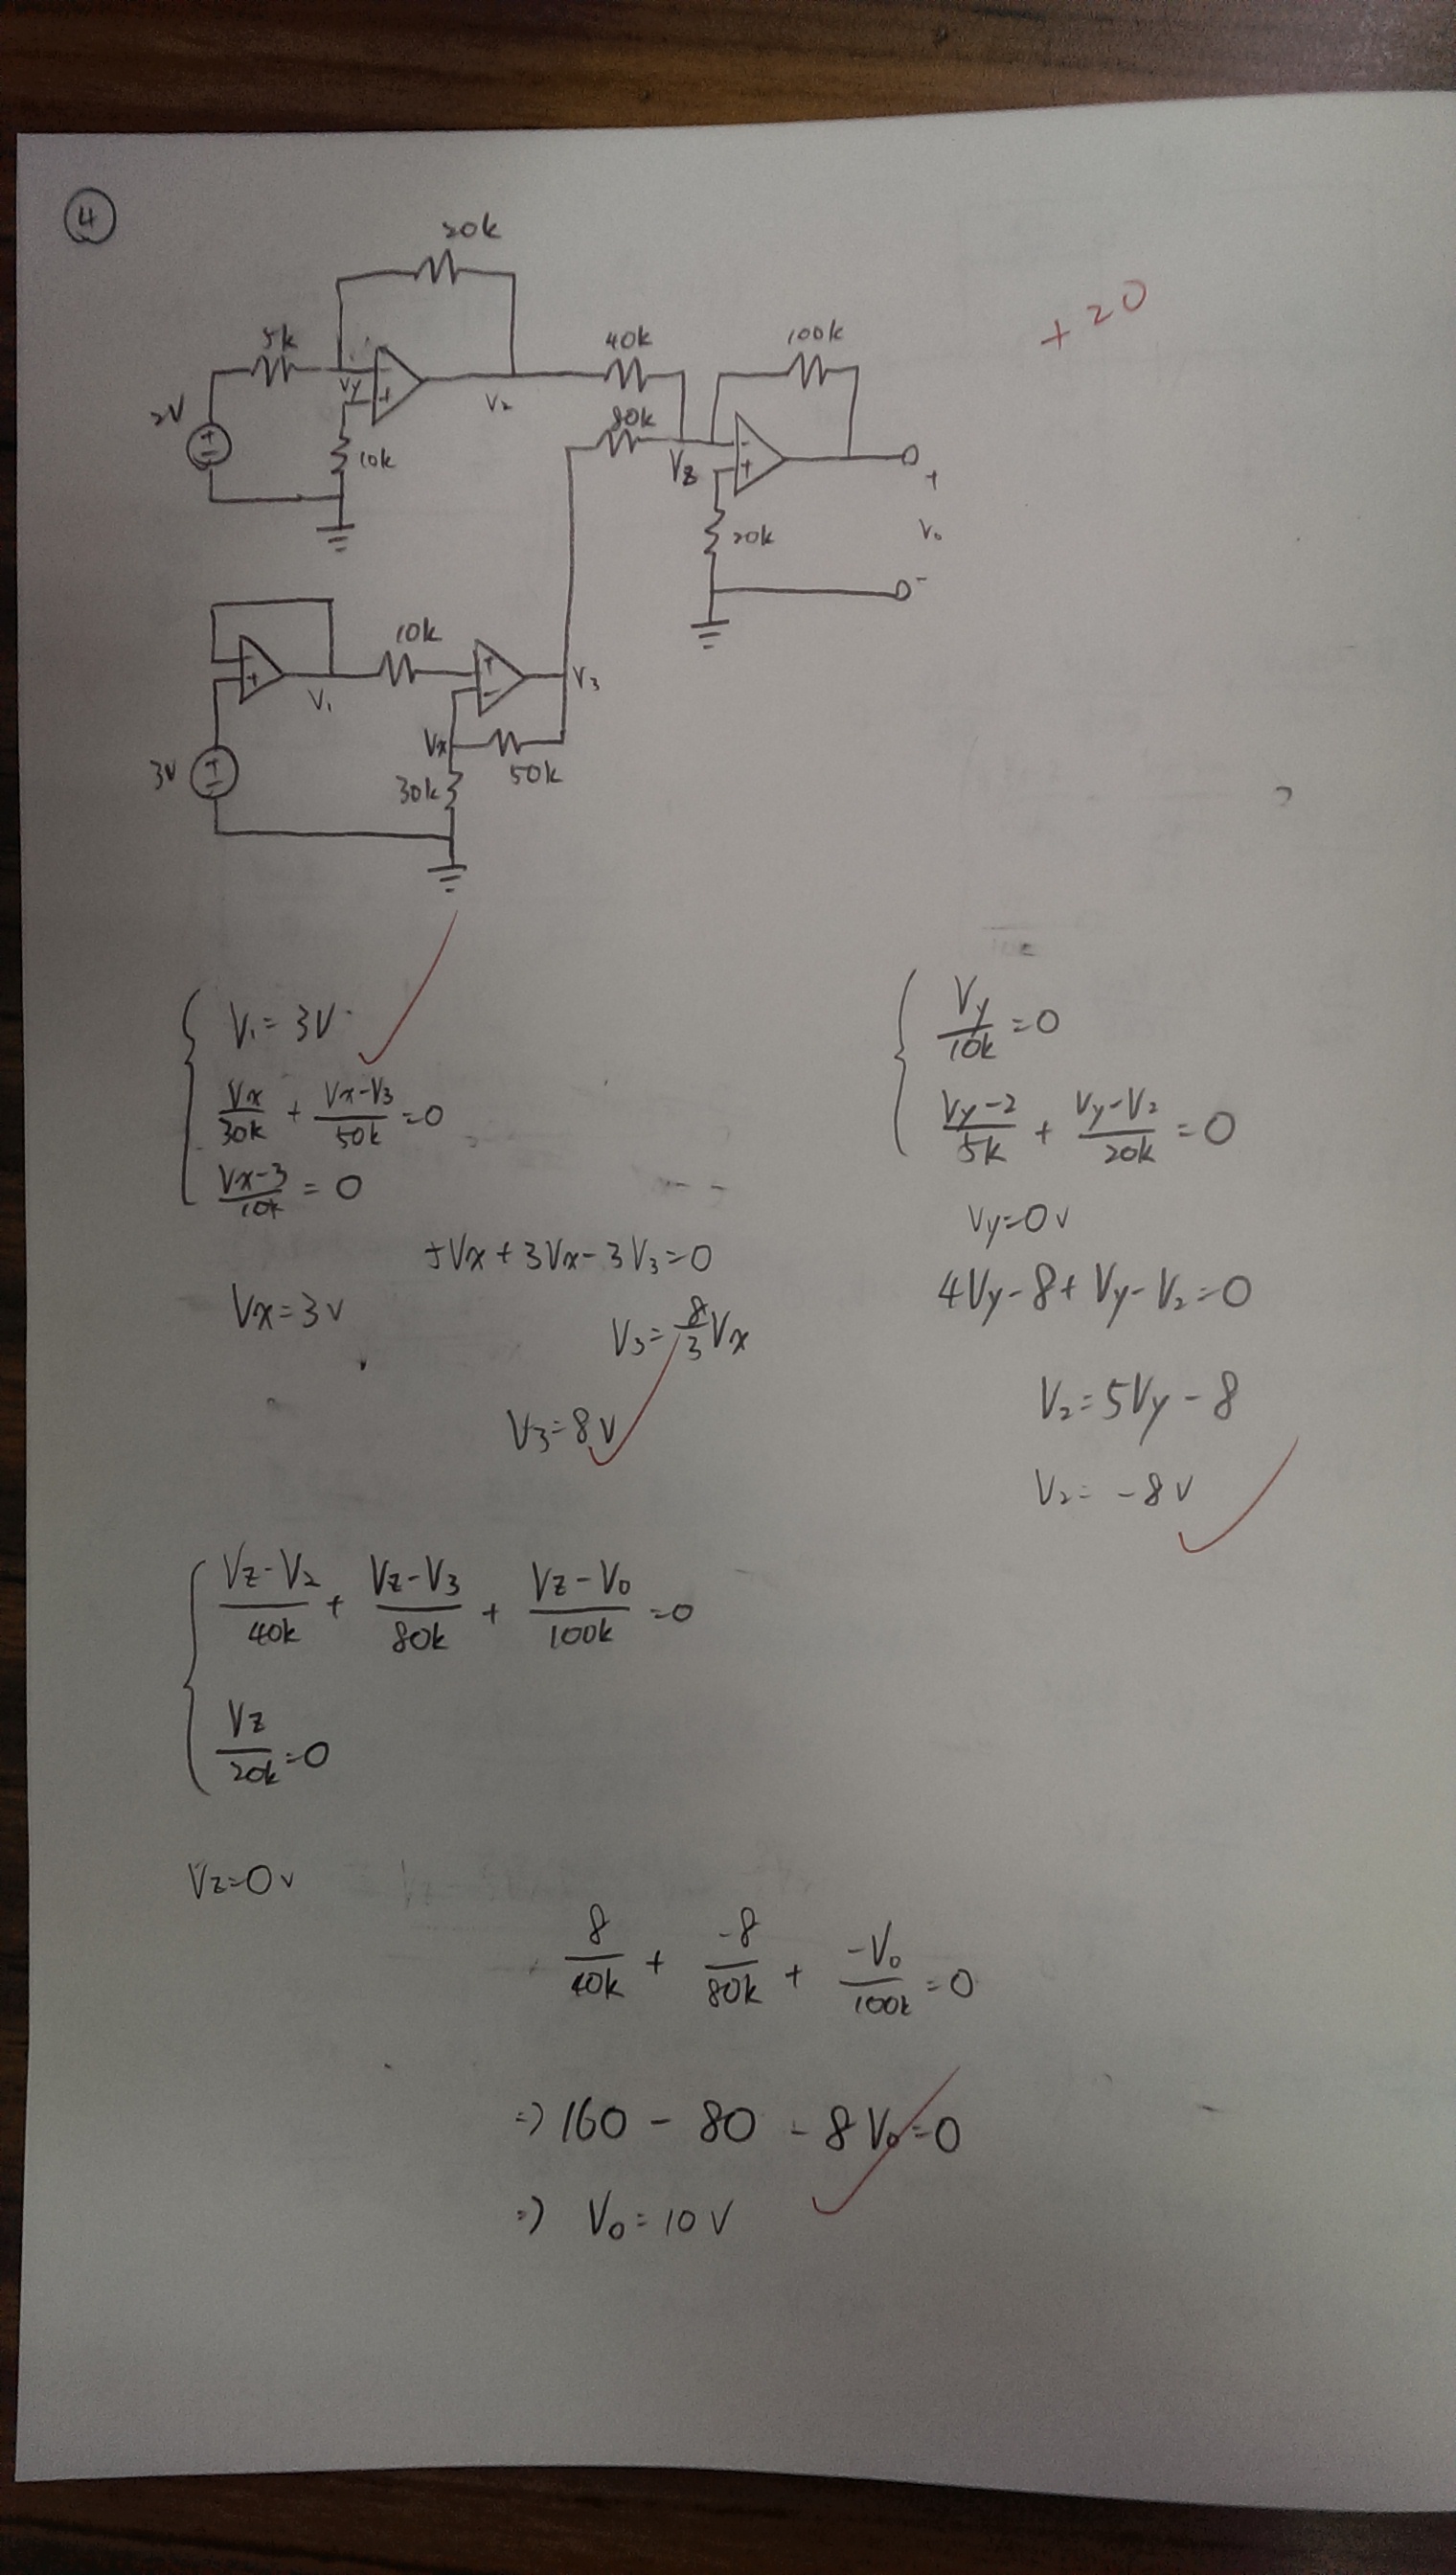 ④
20k
+20
5k
40k
100k
Vy
-
+
2V
+
-
V2
80k
10k
Vz
-
+
+
20k
Vo
-
10k
-
+
V1
+
-
V3
Vx
3V
+
-
50k
30k
V1=3V
Vx/30k + Vx-V3/50k =0
Vx-3/10k = 0
5Vx+3Vx-3V3=0
Vx=3v
V3=8/3 Vx
V3=8v
Vy/10k =0
Vy-2/5k + Vy-V2/20k =0
Vy=0v
4Vy-8+Vy-V2=0
V2=5Vy-8
V2= -8v
Vz-V2/40k + Vz-V3/80k + Vz-Vo/100k =0
Vz/20k =0
Vz=0v
8/40k + -8/80k + -Vo/100k =0
=> 160 - 80 - 8Vo=0
=> Vo=10V